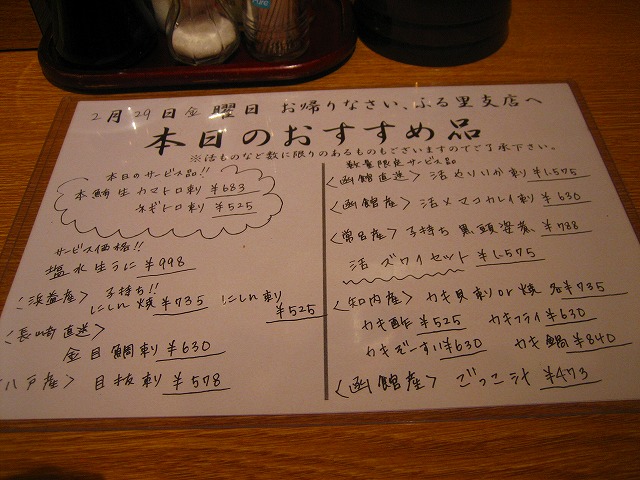 2月29日金曜日 お帰りなさい、ふる里支店へ
本日のおすすめ品
※活ものなど数に限りのあるものもございますのでご了承下さい。
本日のサービス品!!
本鮪生カマトロ刺 ¥683
ネギトロ刺 ¥525
サービス価格!!
塩水生うに ¥998
〈浜益産〉 子持ち!!
にしん焼 ¥735 にしん刺 ¥525
〈長崎直送〉
金目鯛刺 ¥630
〈八戸産〉 目抜刺 ¥578
数量限定サービス品
〈函館直送〉 活やりいか刺 ¥1,575
〈函館産〉 活〆マツカレイ刺 ¥630
子持ち 黒頭姿煮 ¥788
活 ズワイセット ¥1,575
カキ貝刺or焼 各¥735
カキ酢 ¥525 カキフライ ¥630
カキぞーすい ¥630 カキ鍋 ¥840
〈函館産〉 ごっこ汁 ¥473